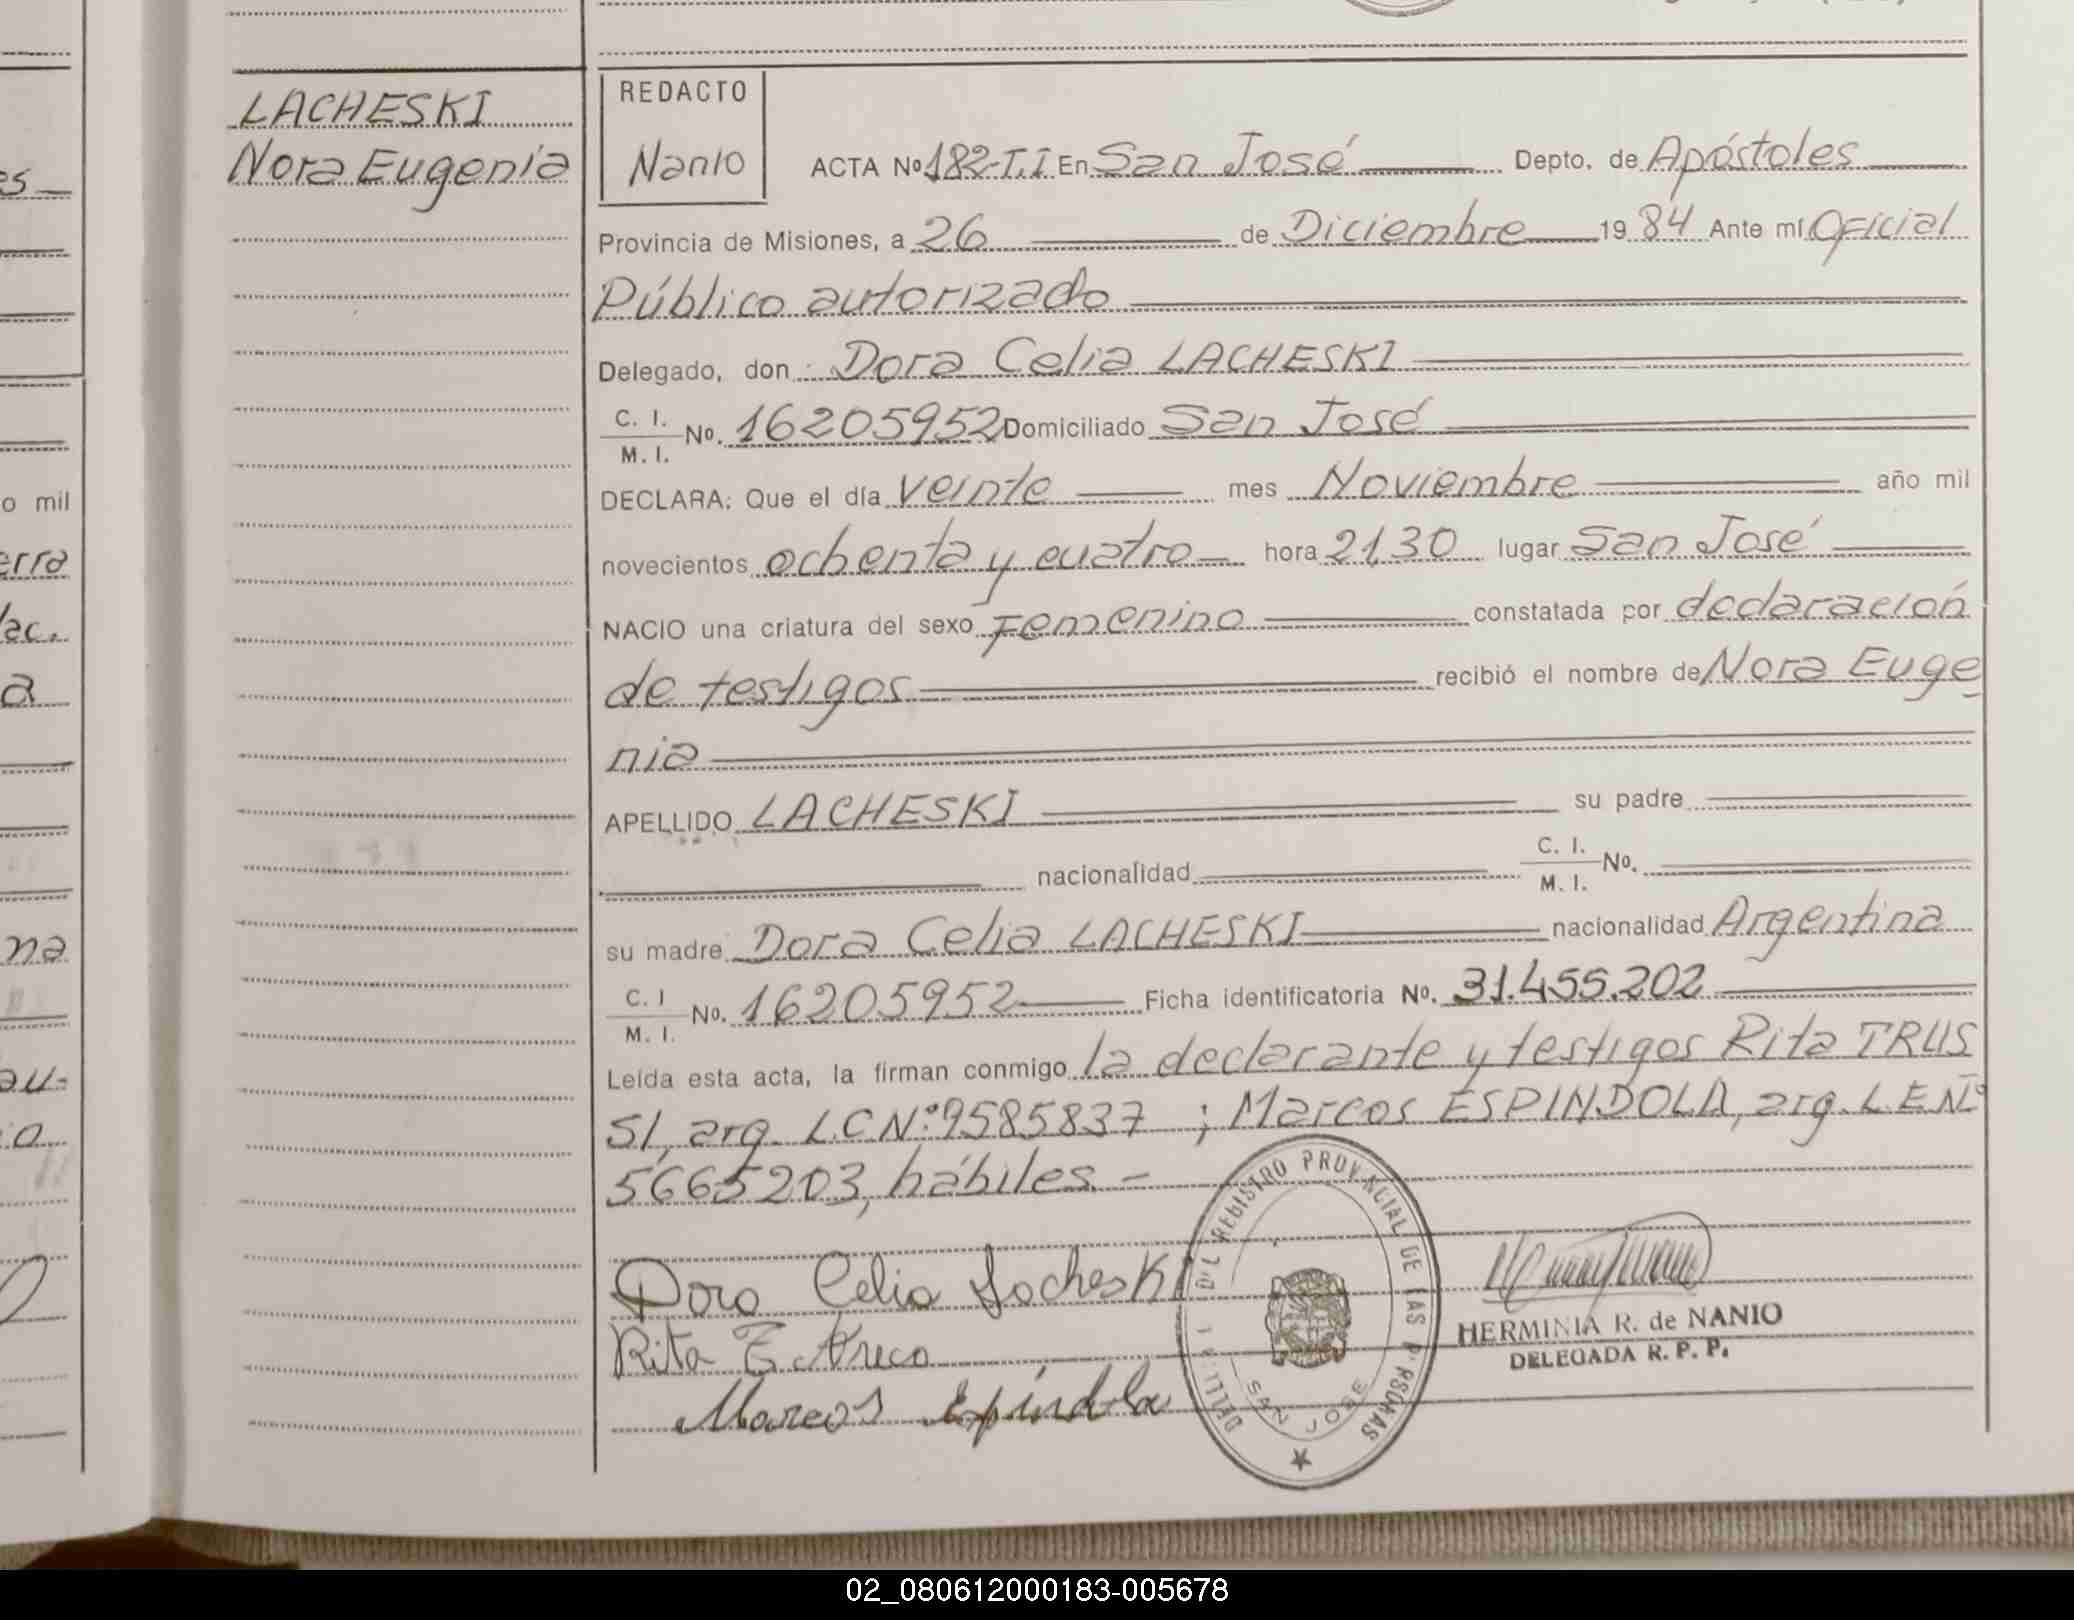 LACHESKI
Nora Eugenia
REDACTO
Nanio
ACTA Nº 182-T.I En San José Depto. de Apóstoles
Provincia de Misiones, a 26 de Diciembre 19 84 Ante mí Oficial
Público autorizado
Delegado, don Dora Celia LACHESKI
C. I. / M. I. No. 16205952 Domiciliado San José
DECLARA: Que el día veinte mes Noviembre año mil
novecientos ochenta y cuatro hora 21,30 lugar San José
NACIO una criatura del sexo Femenino constatada por declaración
de testigos recibió el nombre de Nora Euge
nia
APELLIDO LACHESKI su padre
nacionalidad C. I. / M. I. No.
su madre Dora Celia LACHESKI nacionalidad Argentina
C. I / M. I. No. 16205952 Ficha identificatoria No. 31.455.202
Leída esta acta, la firman conmigo la declarante y testigos Rita TRUS
SI, arg. L.C.Nº:9585837 ; Marcos ESPINDOLA, arg. L.E.Nº
5665203, hábiles. -
Dora Celia LachesKi
Rita
Marcos Espíndola
DEL REGISTRO PROVINCIAL DE LAS PERSONAS
SAN JOSE
HERMINIA R. de NANIO
DELEGADA R. P. P.
o mil
erra
na
au-
02_080612000183-005678